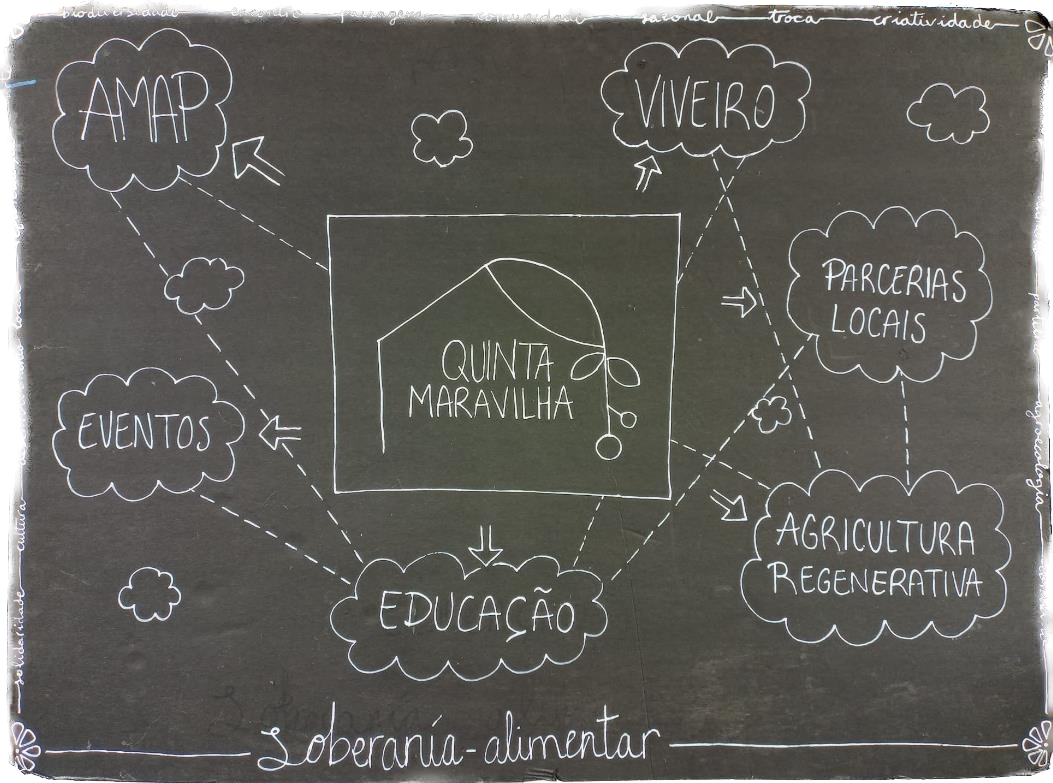 biodiversidade encontro passagem comunidade sazonal troca criatividade
AMAP
VIVEIRO
PARCERIAS
LOCAIS
QUINTA
MARAVILHA
EVENTOS
AGRICULTURA
REGENERATIVA
EDUCAÇÃO
cultura
solidariedade
agroecologia
Soberanía-alimentar